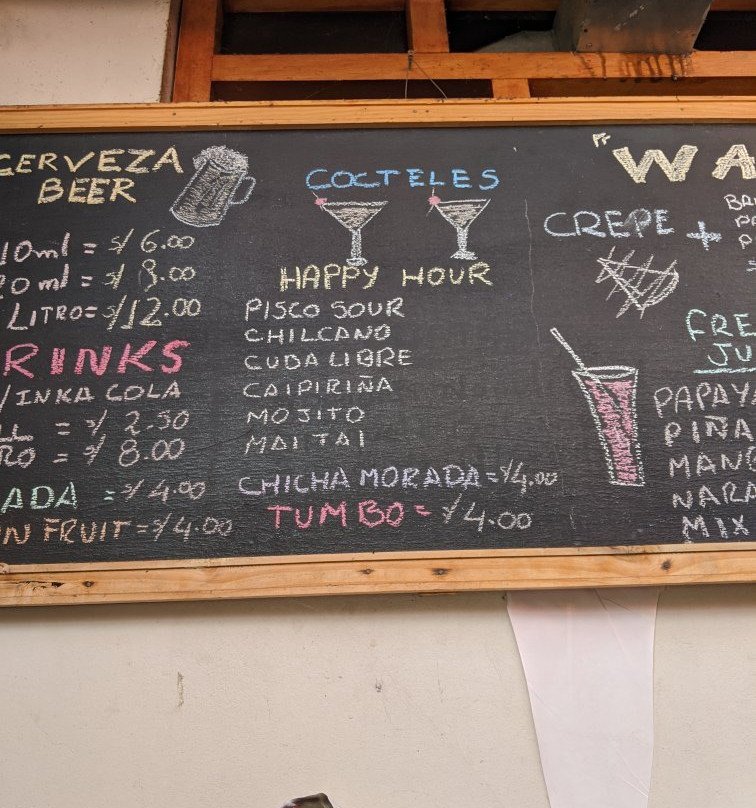 CERVEZA
BEER
10ml = S/ 6.00
20ml = S/ 8.00
LITRO= S/12.00
RINKS
/INKA COLA
LL = S/ 2.50
RO = S/ 8.00
ADA = S/ 4.00
N FRUIT = S/4.00
COCTELES
HAPPY HOUR
PISCO SOUR
CHILCANO
CUBA LIBRE
CAIPIRIÑA
MOJITO
MAI TAI
CHICHA MORADA = S/4.00
TUMBO = S/4.00
"WA
CREPE +
FRE
JU
PAPAYA
PIÑA
MANG
NARA
MIX